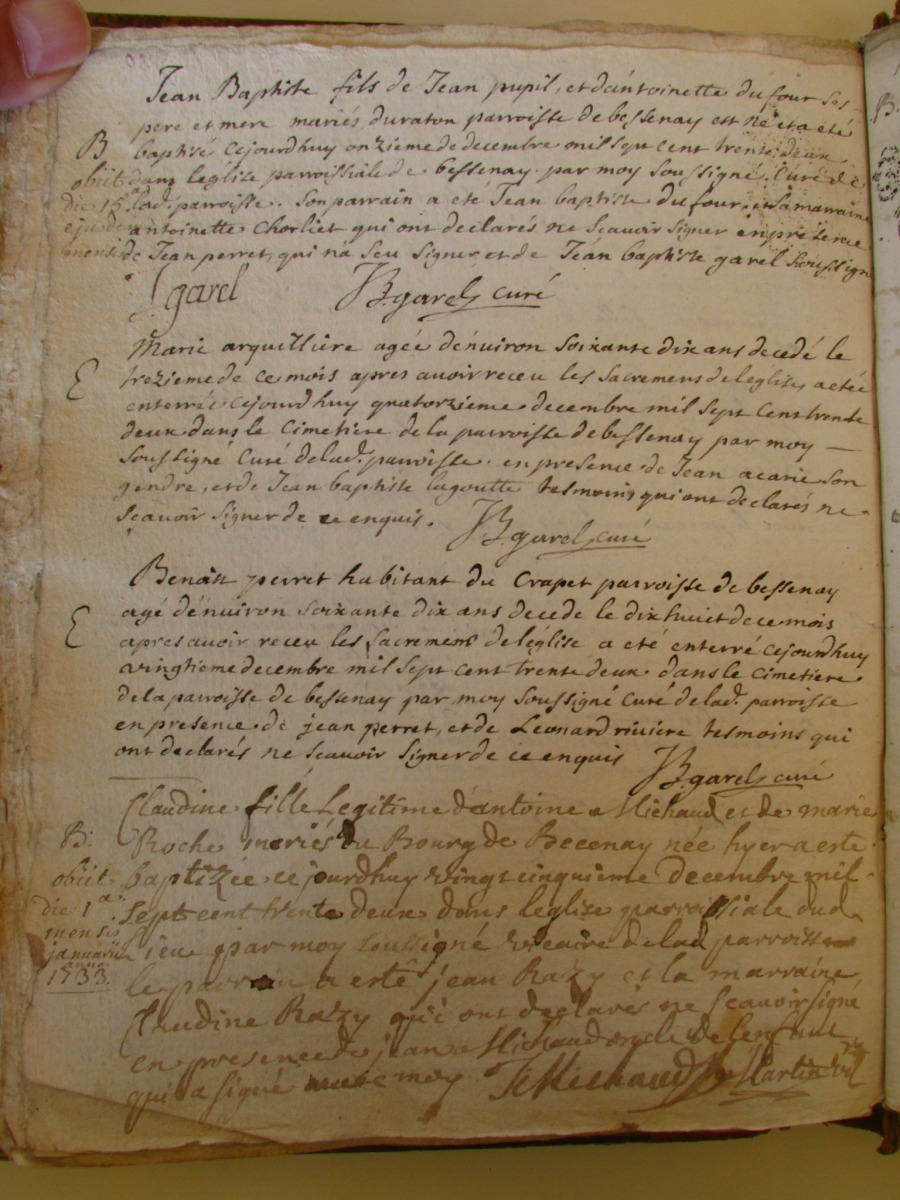 Jean Baptiste fils de Jean pupil, et dántoinette du four ses
pere et mere mariés du raton parroisse de bessenay est né et a eté
B baptisé cejourdhuy onzieme de decembre mil sept cent trente deux
obiit dans leglise parroissiale de bessenay par moy soussigné Curé de
die 15 lad. parroisse. Son parrain a eté Jean baptiste du four, et sa marraine
ejusde antoinette Chorliet qui ont declarés ne scavoir signer en presence
mensis de Jean perret, qui n'a seu signer et de Jean baptiste garel soussigné
J garel JB garel curé
Marie arquilliere agée dénuiron soixante dix ans decedé le
E trezieme de ce mois apres avoir receu les sacremens de leglise, a eté
enterrée cejourdhuy quatorzieme decembre mil sept cent trente
deux dans le Cimetiere de la parroisse de bessenay par moy
soussigné Curé de lad. parroisse. en presence de Jean acarie son
gendre, et de Jean baptiste lagoutte tesmoins qui ont declarés ne
scavoir signer de ce enquis. JB garel curé
Benoist perret habitant du Crapet parroisse de bessenay
agé dénuiron soixante dix ans decede le dixhuict de ce mois
E apres avoir receu les sacremens de leglise a eté enterré cejourdhuy
vingtieme decembre mil sept cent trente deux dans le cimetiere
de la parroisse de bessenay par moy soussigné Curé de lad. parroisse
en presence de jean perret, et de Leonard riviere tesmoins qui
ont declarés ne scavoir signer de ce enquis JB garel curé
Claudine fille Legitime d'antoine Michaud et de marie
B. Roche mariés du Bourg de Becenay née hyer a esté
obiit baptizée cejourdhuy vingt cinquieme decembre mil
die 1a sept cent trente deux dans leglise parroissiale dud
mensis
januarii lieu par moy soussigné vicaire de lad parroisse
anno
1733. le parrain a esté jean Razy et la marraine
Claudine Razy qui ont declarés ne scavoir signé
en presence de jean Michaud oncle de lenfant
qui a signé avec moy Michaud Martin vic